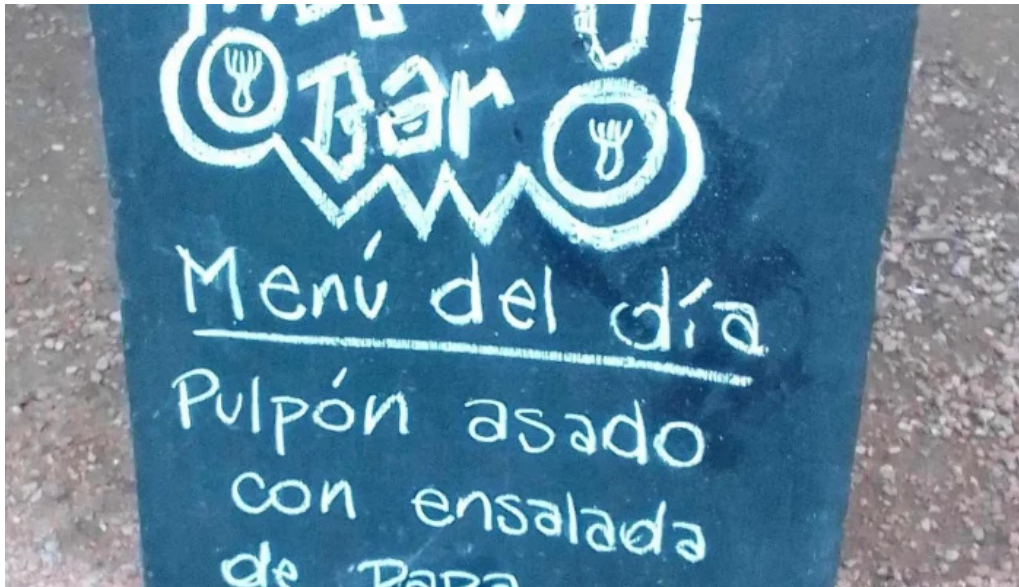 Bar
Menú del día
Pulpón asado
con ensalada
de papa